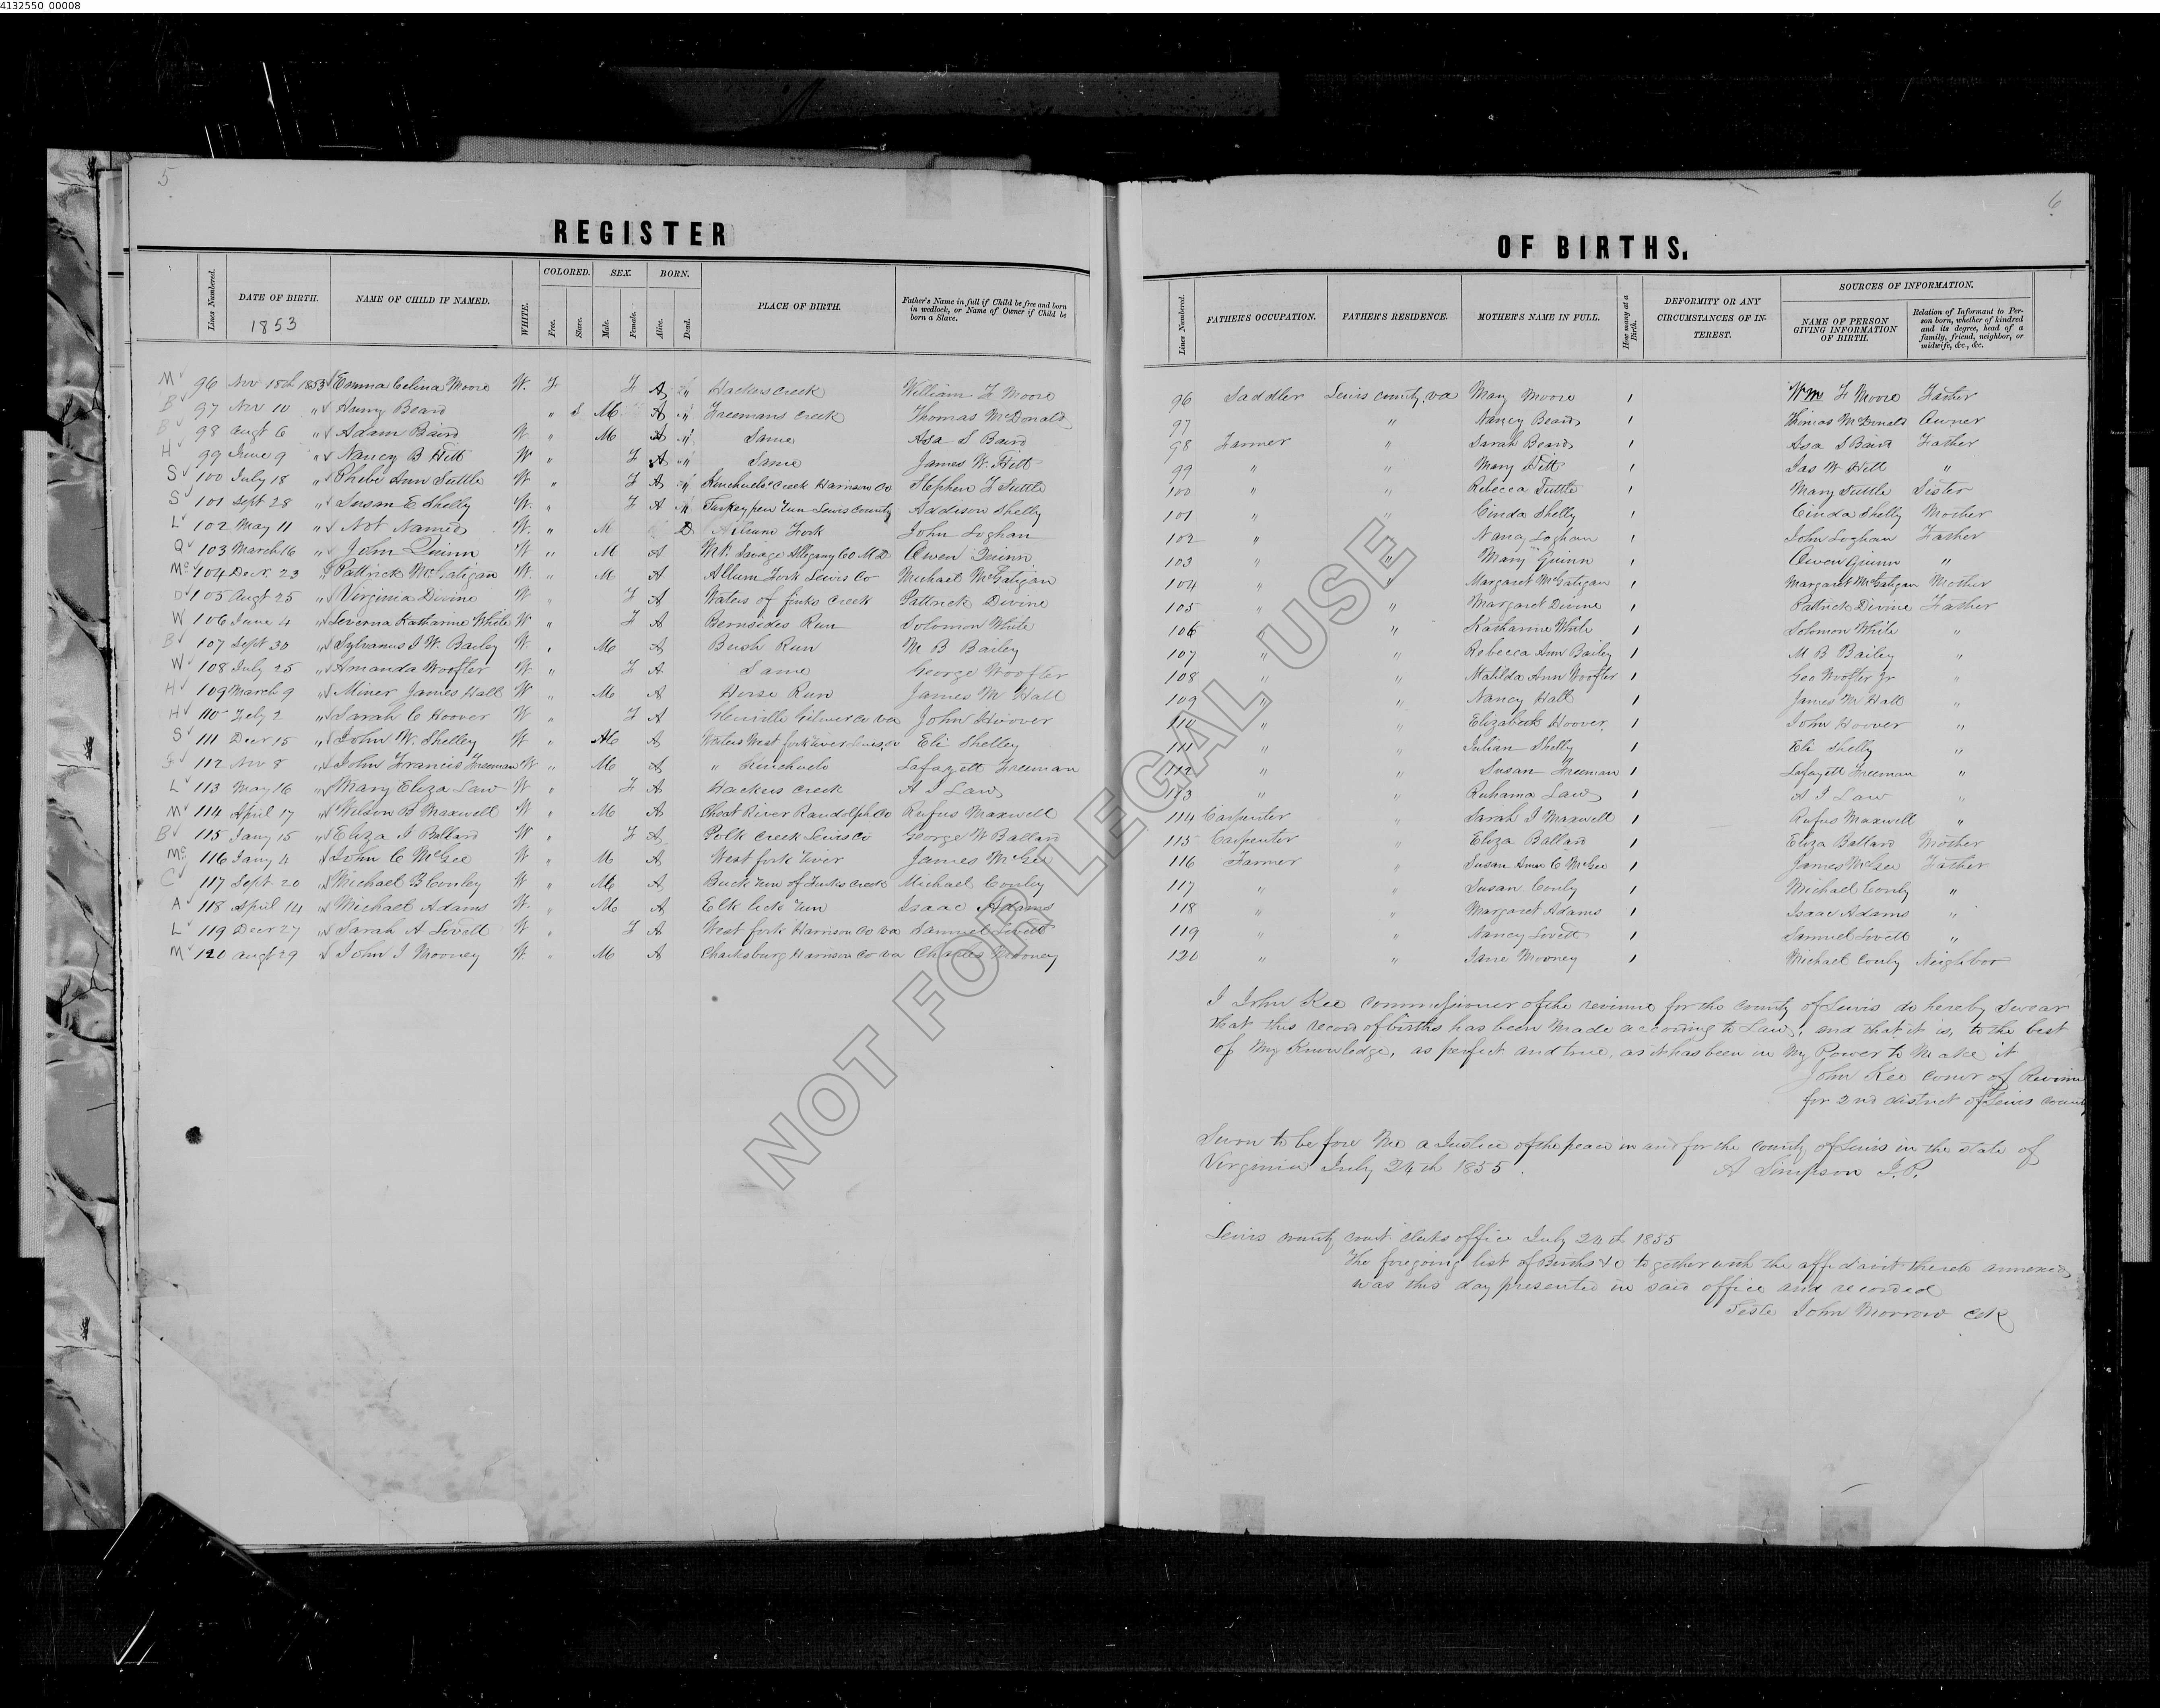 4132550_00008
5
REGISTER
Lines Numbered. DATE OF BIRTH. NAME OF CHILD IF NAMED. WHITE. COLORED. Free. Slave. SEX. Male. Female. BORN. Alive. Dead. PLACE OF BIRTH. Father's Name in full if Child be free and born in wedlock, or Name of Owner if Child be born a Slave.
1853
M 96 Nov 18th 1853 Emma Celina Moore W. F F A " Hackers Creek William F Moore
B 97 Nov 10 " Harry Beard " S M A " Freemans Creek Thomas McDonald
B 98 Augt 6 " Adam Baird W. " M A " Same Asa S Baird
H 99 June 9 " Nancy B Hitt W " F A " Same James W. Hitt
S 100 July 18 " Phebe Ann Suttle W. " F A " Kincheloe Creek Harrison Co Stephen F Suttle
S 101 Sept 28 " Susan E Shelly W. " F A " Turkeypen run Lewis County Addison Shelly
L 102 May 11 " Not Named W. " M D Allum Fork John Loghan
Q 103 March 16 " John Quinn W " M A Mt. Savage Allegany Co M.D Owen Quinn
Mc 104 Decr 23 " Pattrick McGatigan W. " M A Allum Fork Lewis Co Michael McGatigan
D 105 Augt 25 " Virginia Divine W " F A Waters of finks Creek Pattrick Divine
W 106 June 4 " Leverna Katharine White W " F A Bernsides Run Solomon White
B 107 Sept 30 " Sylvanus J W. Bailey W " M A Bush Run M B Bailey
W 108 July 25 " Amanda Woofter W " F A Same George Woofter
H 109 March 9 " Miner James Hall W " M A Horse Run James M Hall
H 110 Feby 2 " Sarah C Hoover W " F A Glenville Gilmer Co va John Hoover
S 111 Decr 15 " John W. Shelley W " M A Waters West fork river Lewis co Eli Shelley
F 112 Nov 8 " John Francis Freeman W " M A " Kincheelo Lafayett Freeman
L 113 May 16 " Mary Eliza Law W " F A Hackers creek A J Law
M 114 April 17 " Wilson B Maxwell W " M A Cheat River Randolph Co Rufus Maxwell
B 115 Jany 15 " Eliza J Ballard W " F A Polk Creek Lewis Co George W Ballard
Mc 116 Jany 4 " John C McGee W " M A West fork river James McGee
C 117 Sept 20 " Michael B Conley W " M A Buck run of Finks Creek Michael Conley
A 118 April 14 " Michael Adams W. " M A Elk lick run Isaac Adams
L 119 Decr 27 " Sarah A Lovett W " F A West fork Harrison Co va Samuel Lovett
M 120 Augt 29 " John J Mooney W " M A Clarksburg Harrison Co va Charles Mooney
6
OF BIRTHS.
Lines Numbered. FATHER'S OCCUPATION. FATHER'S RESIDENCE. MOTHER'S NAME IN FULL. How many at a Birth. DEFORMITY OR ANY CIRCUMSTANCES OF INTEREST. SOURCES OF INFORMATION. NAME OF PERSON GIVING INFORMATION OF BIRTH. Relation of Informant to Person born, whether of kindred and its degree, head of a family, friend, neighbor, or midwife, &c., &c.
96 Saddler Lewis county, va Mary Moore 1 Wm F Moore Father
97 " Nancy Beard 1 Thomas McDonald Owner
98 Farmer " Sarah Beard 1 Asa S Baird Father
99 " " Mary Hitt 1 Jas W Hitt "
100 " " Rebecca Suttle 1 Mary Suttle Sister
101 " " Cinda Shelly 1 Cinda Shelly Mother
102 " " Nancy Loghan 1 John Loghan Father
103 " " Mary Quinn 1 Owen Quinn "
104 " " Margaret McGatigan 1 Margaret McGatigan Mother
105 " " Margaret Divine 1 Pattrick Divine Father
106 " " Katharine White 1 Solomon White "
107 " " Rebecca Ann Bailey 1 M B Bailey "
108 " " Matilda Ann Woofter 1 Geo Woofter Jr "
109 " " Nancy Hall 1 James M Hall "
110 " " Elizabeth Hoover 1 John Hoover "
111 " " Julian Shelly 1 Eli Shelly "
112 " " Susan Freeman 1 Lafayett Freeman "
113 " " Ruhama Law 1 A J Law "
114 Carpenter " Sarah J Maxwell 1 Rufus Maxwell "
115 Carpenter " Eliza Ballard 1 Eliza Ballard Mother
116 Farmer " Susan Ann C McGee 1 James McGee Father
117 " " Susan Conly 1 Michael Conly "
118 " " Margaret Adams 1 Isaac Adams "
119 " " Nancy Lovett 1 Samuel Lovett "
120 " " Jane Mooney 1 Michael Conly Neighbor
I John Kee commissioner of the revinue for the county of Lewis do hereby swear
that this record of births has been made according to Law, and that it is, to the best
of my Knowledge, as perfect and true, as it has been in my Power to Make it
John Kee comr of Revinue
for 2nd district of Lewis County
Sworn to before Me a Justice of the peace in and for the county of Lewis in the state of
Virginia July 24th 1855. A Simpson J.P.
Lewis county court clerks office July 24th 1855
The foregoing list of Births &c together with the affidavit thereto annexed
was this day presented in said office and recorded
Teste John Morrow Clk
NOT FOR LEGAL USE